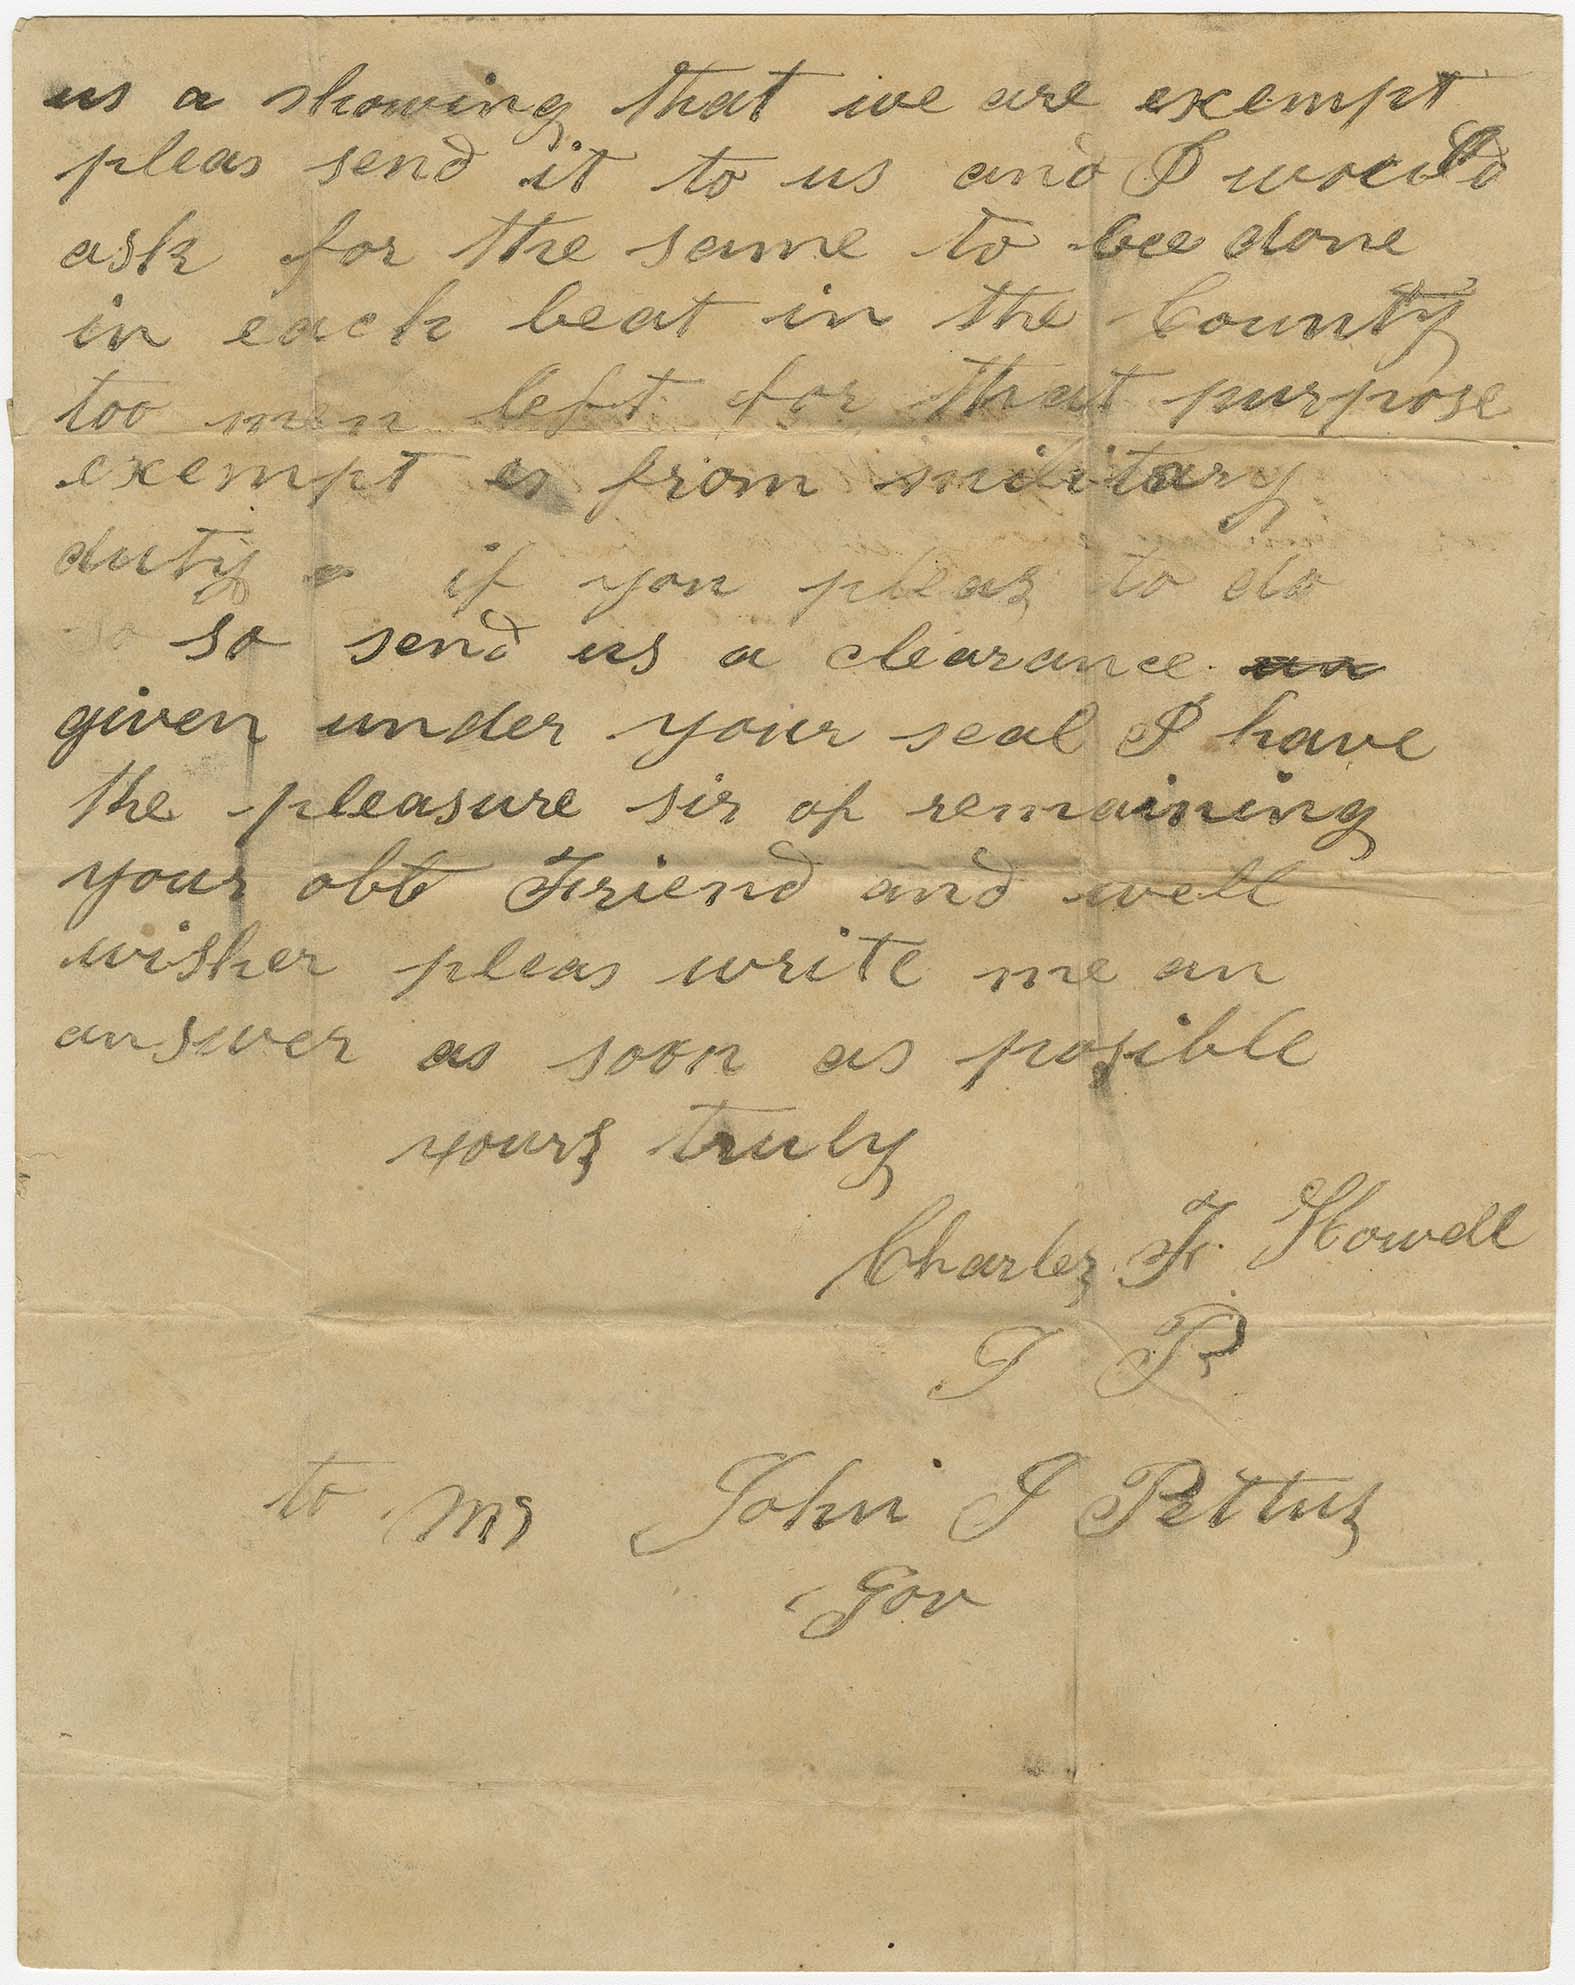 us a showing that we are exempt
pleas send it to us and I would
ask for the same to bee done
in each beat in the County
too men left for that purpose
exempt es from military
duty if you pleas to do
so so send us a clearance
given under your seal I have
the pleasure sir of remaining
your obt Friend and well
wisher pleas write me an
answer as soon as posible
yours truly
Charles F. Howell
J P
to Mr John J Pettus
Gov